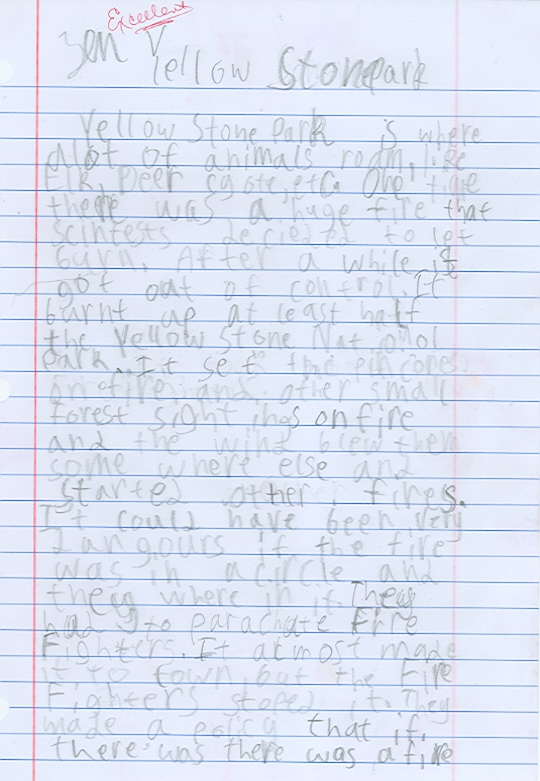 Excellent
Ben Yellow Stone park
Yellow Stone Park is where
alot of animals roam, like
Elk, Deer cyote, etc. One time
there was a huge fire that
scintests decieted to let
burn. After a while it
got out of control. It
burnt up at least half
the Yellow Stone National
park. It set the pin cones
on fire and other small
forest sight ings on fire
and the wind blew them
some where else and
started other fires.
It could have been very
dangours if the fire
was in a circle and
they where in it. They
had to parachate fire
Fighters. It atmost made
it to town but the Fire
Fighters stoped it. They
made a policy that if
there was there was a fire